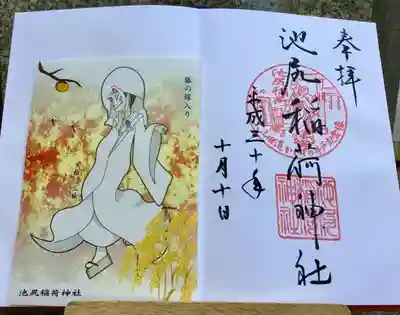 奉拝
池尻稲荷神社
平成三十年
十月十日
狐の嫁入り
池尻稲荷神社